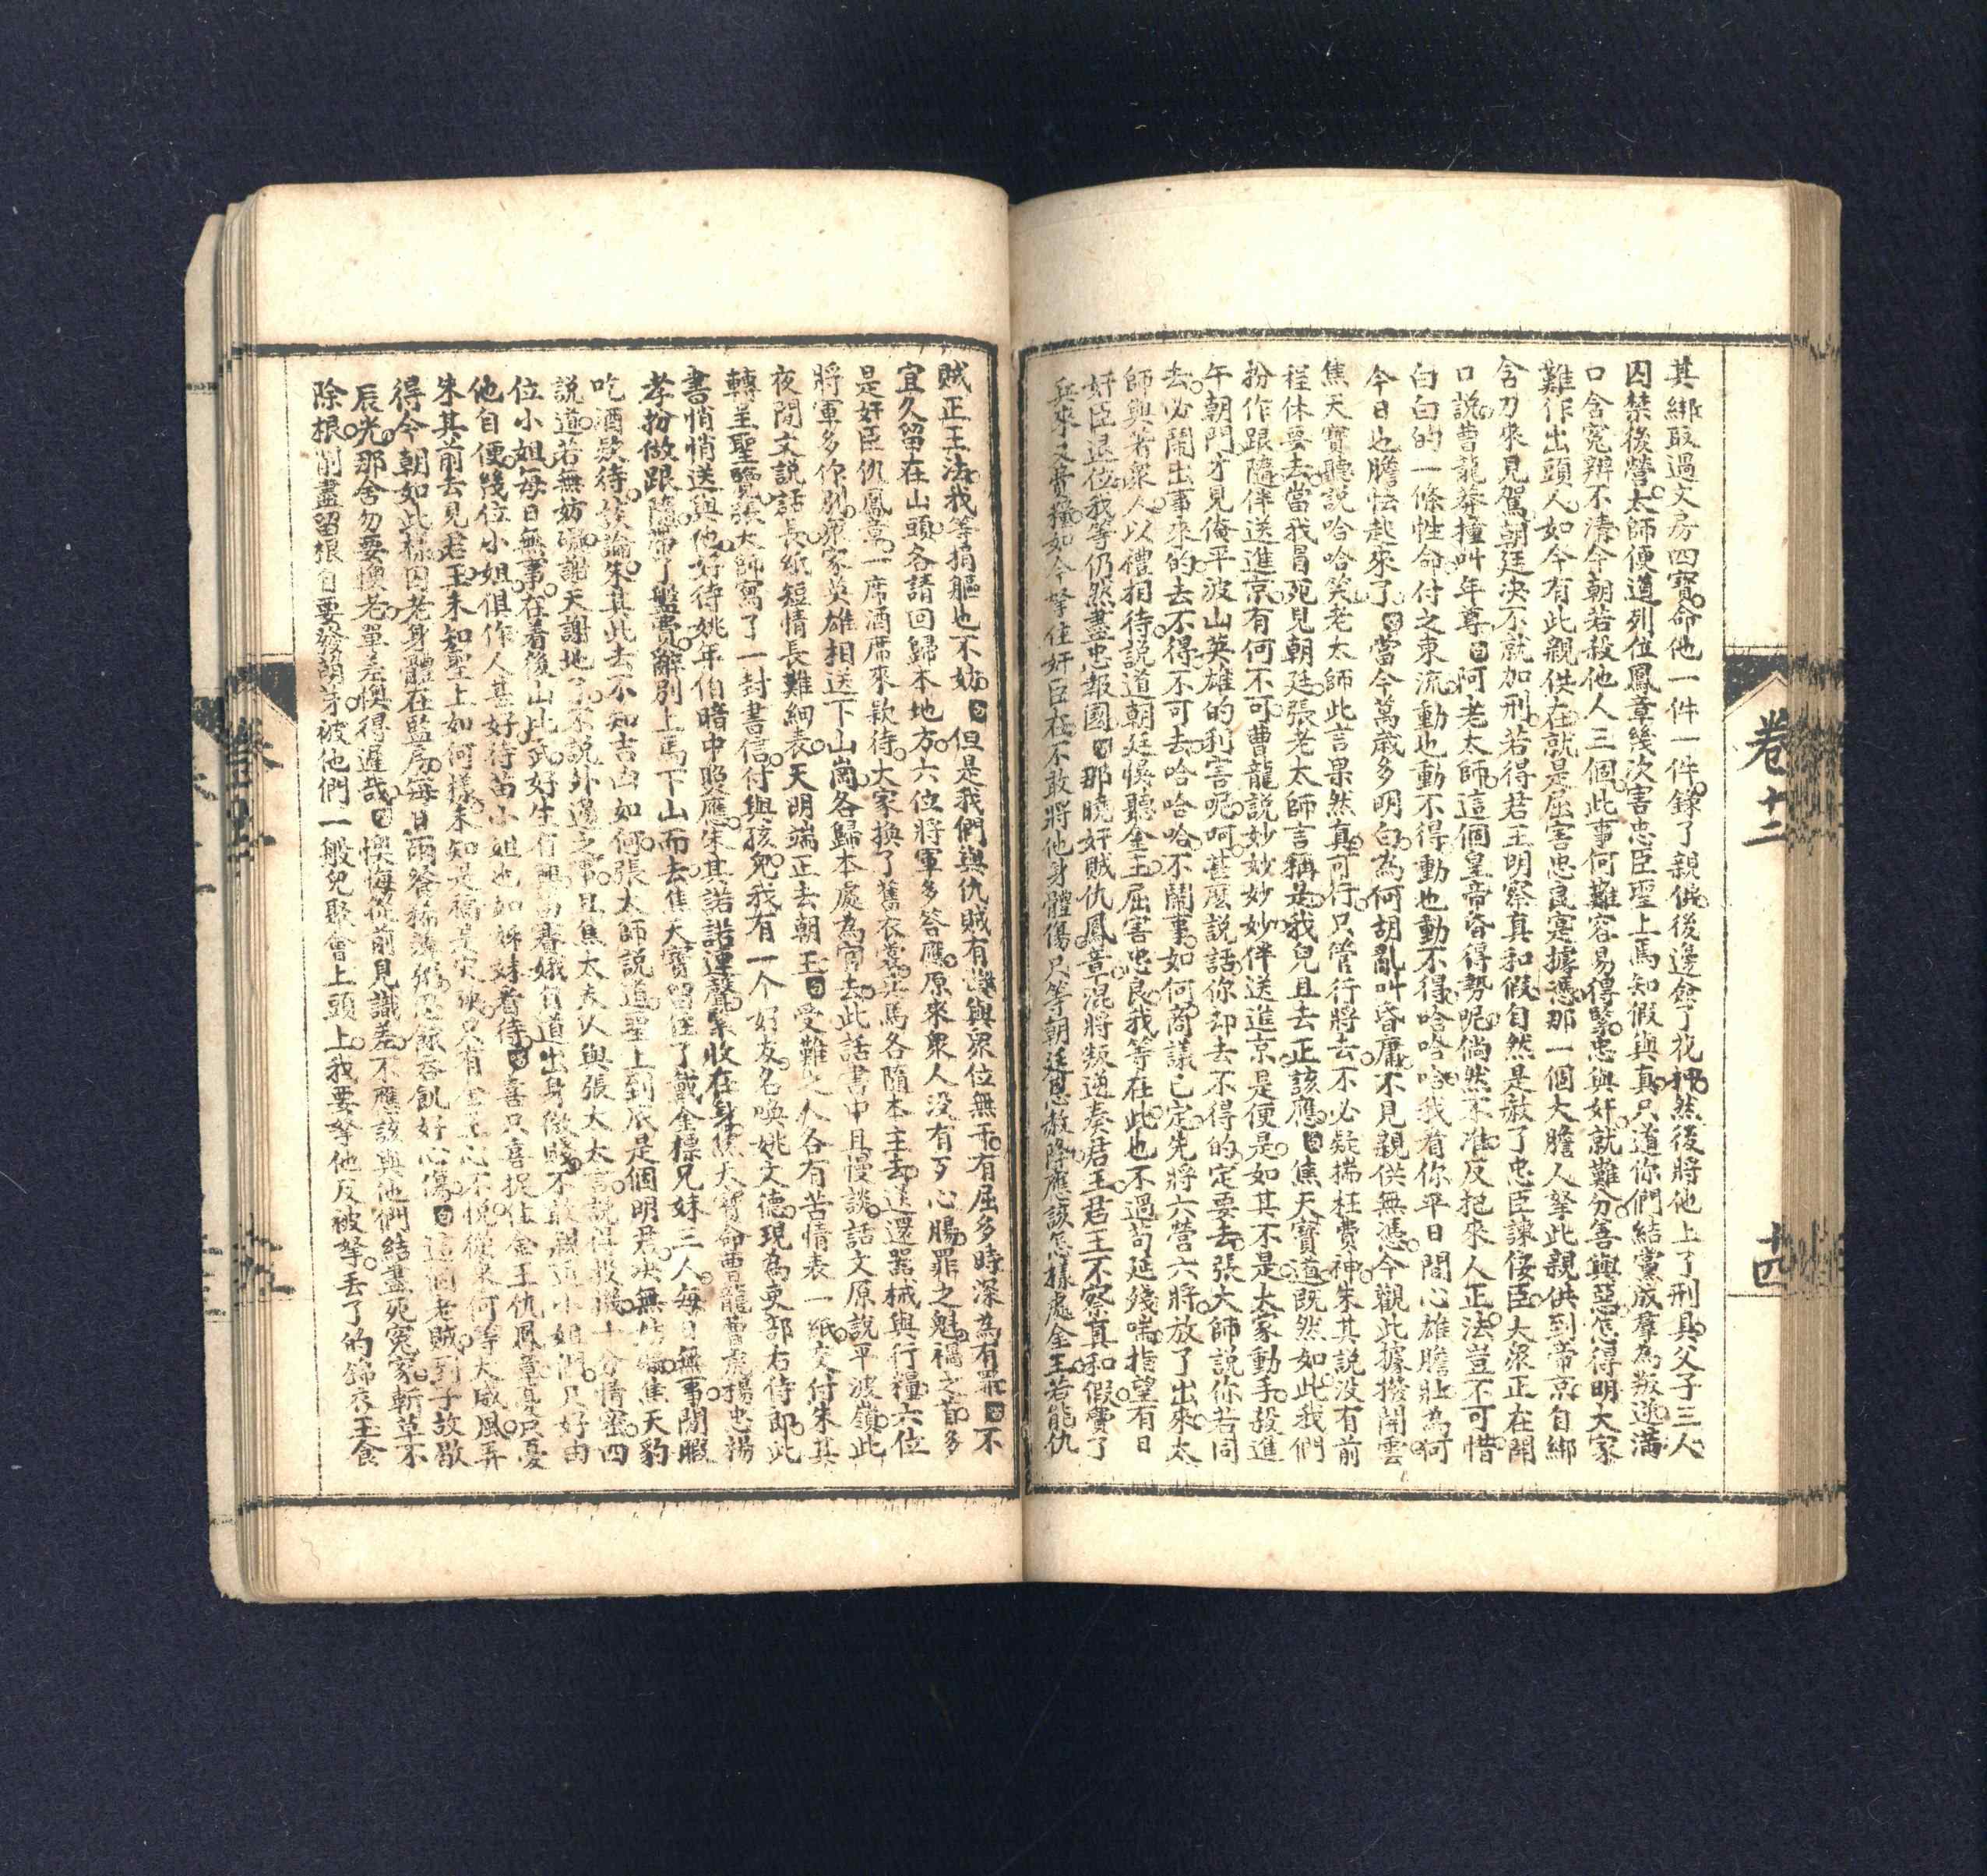 卷十二
十四
其綁取過文房四寶命他一件一件錄了親供後邊僉了花押然後將他上了刑具父子三人
囚禁後營太師便道列位鳳章幾次害忠臣聖上焉知假與真只道你們結黨成羣為叛逆滿
口含冤辨不清今朝若殺他人三個此事何難容易得緊忠與奸就難分善與惡怎得明大家
難作出頭人如今有此親供在就是屈害忠良寔據憑那一個大膽人拏此親供到帝京自綁
含刀來見駕朝廷決不就加刑若得君王明察真和假自然是赦了忠臣諫佞臣大眾正在開
口說曹龍莽撞叫年尊白阿老太師這個皇帝昏得勢呢倘然不准反把來人正法豈不可惜
白白的一條性命付之東流動也動不得動也動不得哈哈哈我看你平日間心雄膽壯為何
今日也膽怯起來了白當今萬歲多明白為何胡亂叫昏庸不見親供無憑今觀此據撥開雲
焦天寶聽說哈哈笑老太師此言果然真可行只管行將去不必疑揣枉費神朱其說沒有前
程休要去當我冒死見朝廷張老太師言稱是我兒且去正該應白焦天寶道既然如此我們
扮作跟隨伴送進京有何不可曹龍說妙妙妙妙伴送進京是便是如其不是大家動手殺進
午朝門才見俺平波山英雄的利害呢呵甚麼說話你却去不得的定要去張大師說你若同
去必鬧出事來的去不得不可去哈哈哈不鬧事如何商議已定先將六營六將放了出來太
師與著眾人以禮相待說道朝廷悞聽金王屈害忠良我等在此也不過苟延殘喘指望有日
奸臣退位我等仍然盡忠報國白那曉奸賊仇鳳章混將叛逆奏君王君王不察真和假費了
兵來又費糧如今拏住奸臣在不敢將他身體傷只等朝廷恩赦降應該怎樣處金王若能仇
賊正王法我等捐軀也不妨白但是我們與仇賊有讐與眾位無干有屈多時深為有罪白不
宜久留在山頭各請回歸本地方六位將軍多答應原來眾人沒有歹心腸罪之魁禍之首多
是奸臣仇鳳章一席酒席來欵待大家換了舊衣裳兵馬各隨本主去送還器械與行糧六位
將軍多作別眾家英雄相送下山崗各歸本處為官去此話書中且慢談話文原說平波嶺此
夜間文說話長紙短情長難細表天明端正去朝王白受難之人各有苦情表一紙交付朱其
轉呈聖覽張大師寫了一封書信付與孩兒我有一个好友名喚姚文德現為吏部右侍郎此
書悄悄送與他好待姚年伯暗中照應朱其諾諾連聲緊收在身焦大寶命曹龍曹虎楊忠楊
孝扮做跟隨帶了盤費辭別上馬下山而去焦天寶留住了戴金標兄妹三人每日無事閒暇
吃酒欵待談論朱其此去不知吉凶如何張太師說道聖上到底是個明君決無妨碍焦天豹
說道若無妨碍謝天謝地了不說外邊之事且焦太夫人與張太太言說得投機十分情密四
位小姐每日無事在着後山比武好生有興
他自便幾位小姐俱作人甚好待苗小姐也如姊妹看待白喜只喜捉住金王仇鳳章憂只憂
朱其前去見君王未知聖上如何樣未知是福
得今朝如此樣囚老身體在監房每日兩餐
辰光那舍勿要懊老單差懊得遲哉白懊悔從前見識差不應該與他們結盡死冤家斬草不
除根削盡留根自要發萌芽被他們一般兒聚會上頭上我要拏他反被拏丟了的錦衣玉食